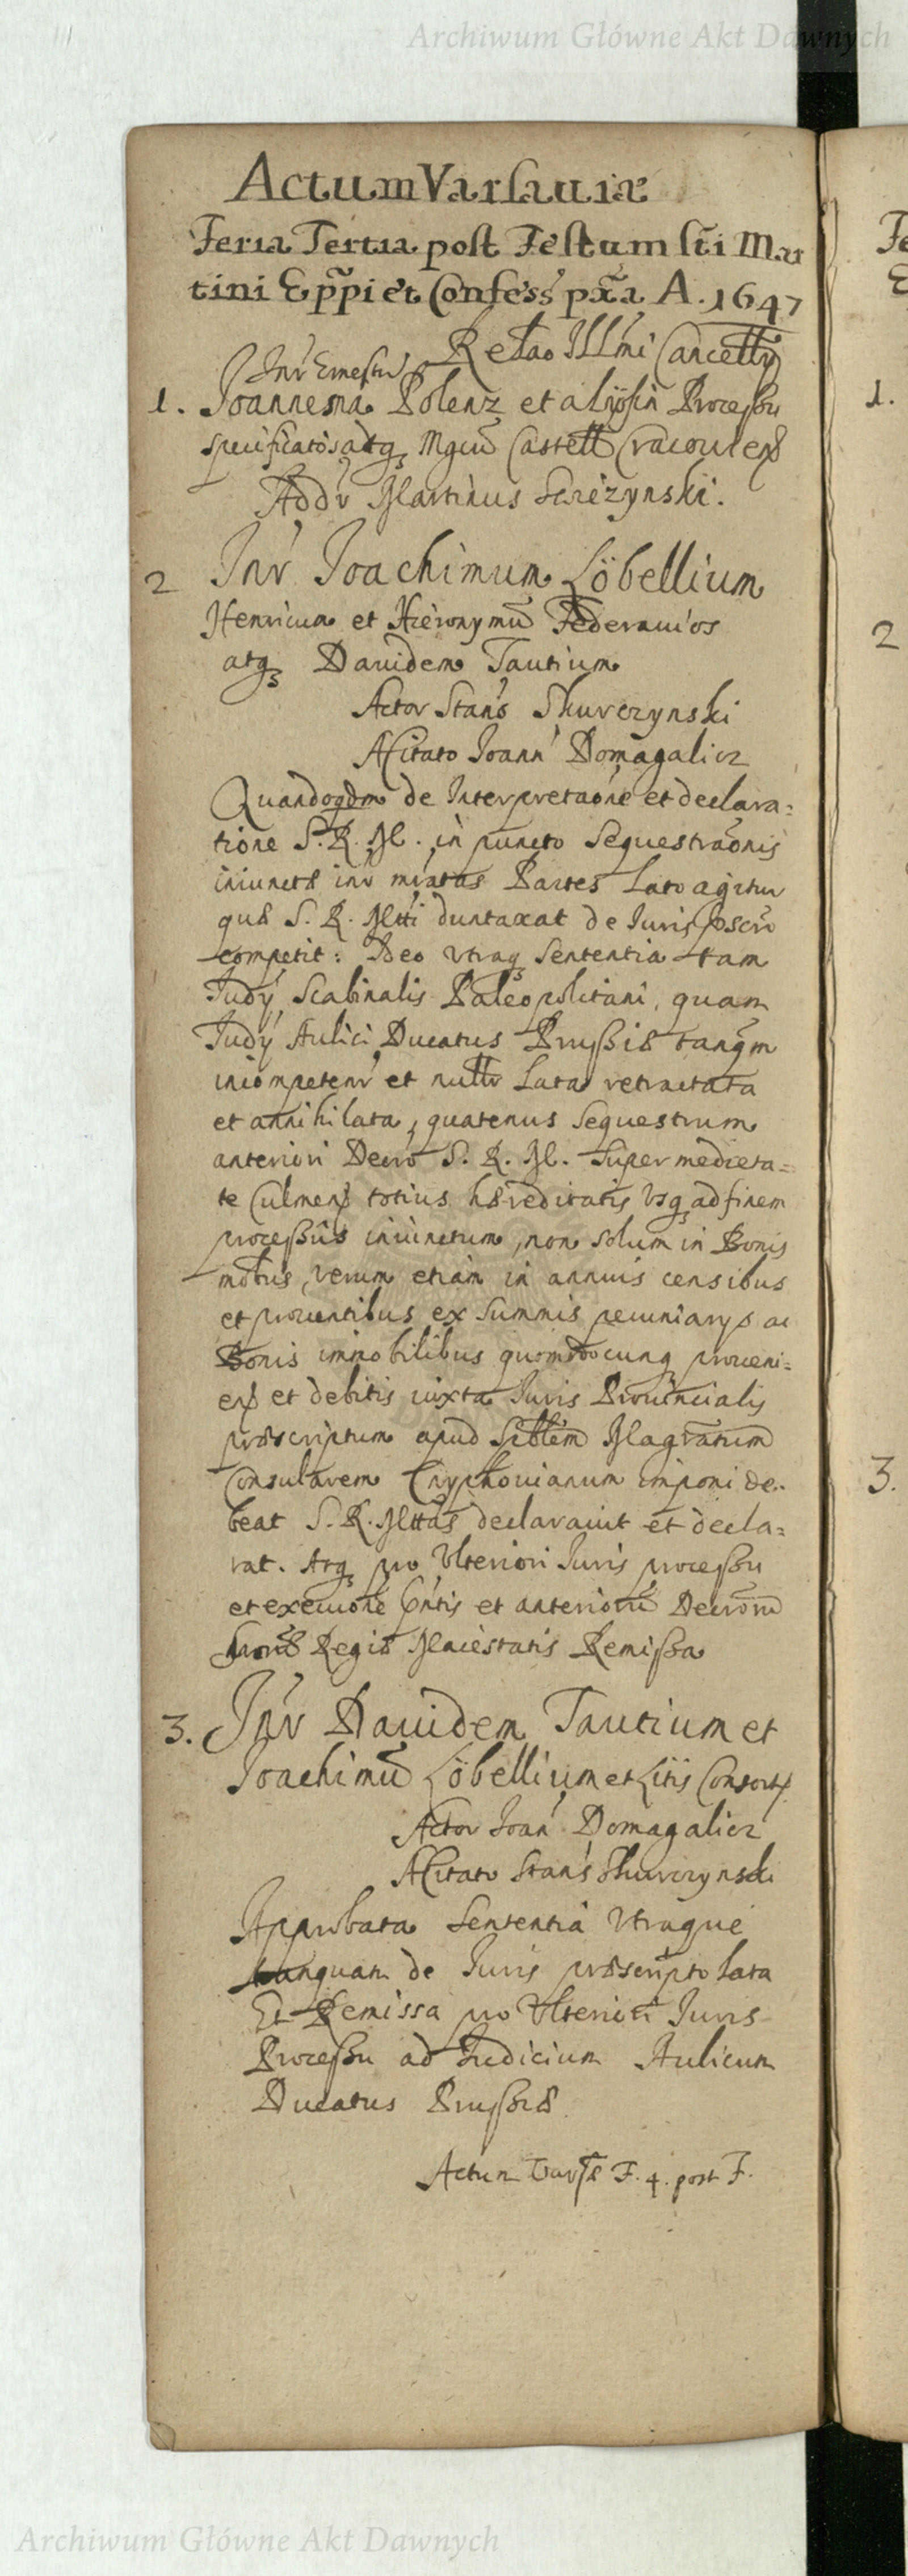 Archiwum Główne Akt Dawnych
Actum Varsaviæ
Feria Tertia post Festum sti Mar
tini Eppi et Confess pxa A. 1647
Relao Illmi Cancelly
Inr Ernestu
1. Joannem a Polenz et alijs in Processu
specificatos atq Mgcu Castell Cracovien
Addr Martinus Screzynski.
2 Inr Joachimum Löbellium
Henricum et Hieronymu Federavios
atq Davidem Tautium
Actor Stans Skurczynski
A Citato Joann Domagalicz
Quandoqdm de Interpretaone et declara=
tione S. R. M. in puncto Sequestraonis
iniunctæ inr mratas Partes Lato agitur
quæ S. R. Mtti duntaxat de Juris pscro
competit: Ideo Utraq Sententia tam
Judij Scabinalis Paleopolitani, quam
Judij Aulici Ducatus Prussiæ tanqm
incompetenr et nullr Lata retractata
et annihilata, quatenus Sequestrum
anteriori Decro S. R. M. Super medieta=
te Culmen totius hæreditatis Usq ad finem
processus iniunctum, non solum in Bonis
mobus, verum etiam in annuis censibus
et proventibus ex Summis pecuniarijs ac
Bonis immobilibus quomodocunq proveni=
en et debitis iuxta Juris Provincialis
præscriptum apud Magratum
Consularem Cnyphovianum imponi de.
beat S. R. Mttas declaravit et decla=
rat. Atq pro Ulteriori Juris processu
et execuone Pntis et anterioru Decroru
Sacræ Regiæ Maiestatis Remissa
3. Inr Davidem Tautium et
Joachimu Löbellium et Litis Consort
Actor Joan Domagalicz
A Citato Stans Skurczynski
Approbata Sententia Utraque
tanquam de Juris præscripto Lata
Et Remissa pro Ulteriori Juris
Processu ad Judicium Aulicum
Ducatus Prussiæ
Actum Varsæ F. 4. post F.
Fe
1.
2
3.
Archiwum Główne Akt Dawnych